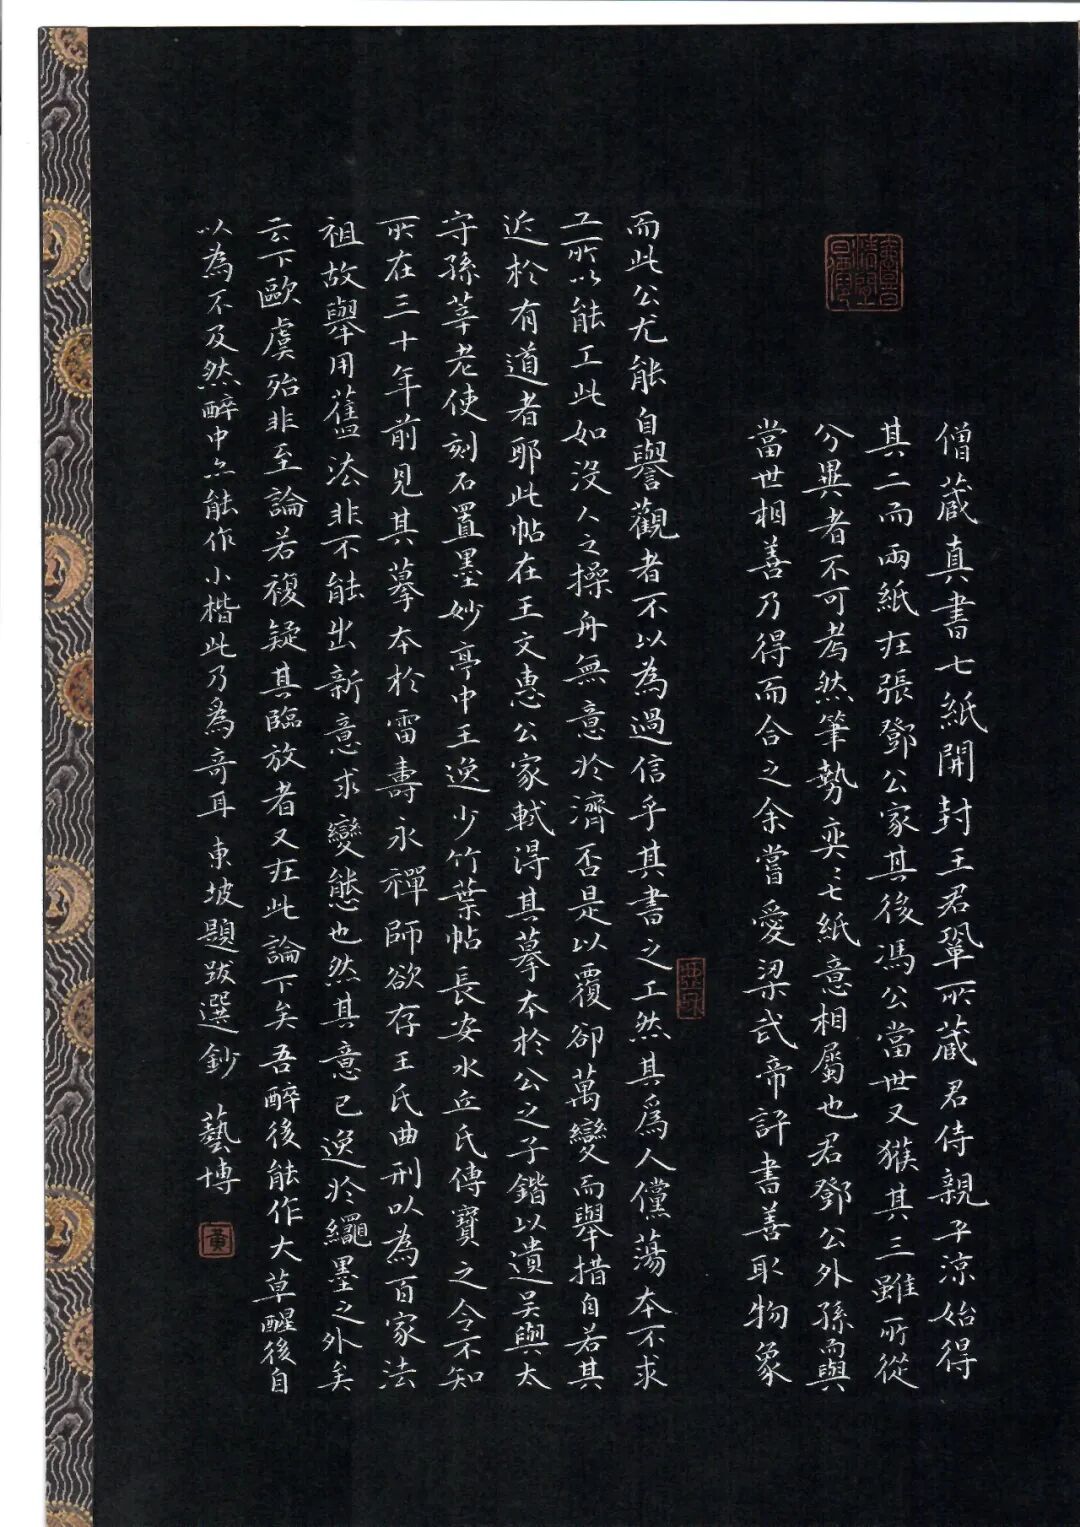 僧藏真書七紙開封王君鞏所藏君侍親平涼始得
其二而兩紙在張鄧公家其後馮公當世又獲其三雖所從
分異者不可考然筆勢奕〻七紙意相屬也君鄧公外孫而與
當世相善乃得而合之余嘗愛梁武帝評書善取物象
而此公尤能自譽觀者不以為過信乎其書之工然其為人儻蕩本不求
工所以能工此如沒人之操舟無意於濟否是以覆卻萬變而舉措自若其
近於有道者耶此帖在王文惠公家軾得其摹本於公之子鍇以遺吳興太
守孫莘老使刻石置墨妙亭中王逸少竹葉帖長安水丘氏傳寶之今不知
所在三十年前見其摹本於雷壽永禪師欲存王氏典刑以為百家法
祖故舉用舊法非不能出新意求變態也然其意已逸於繩墨之外矣
云下歐虞殆非至論若複疑其臨放者又在此論下矣吾醉後能作大草醒後自
以為不及然醉中亦能作小楷此乃為奇耳東坡題跋選鈔 藝博
黃